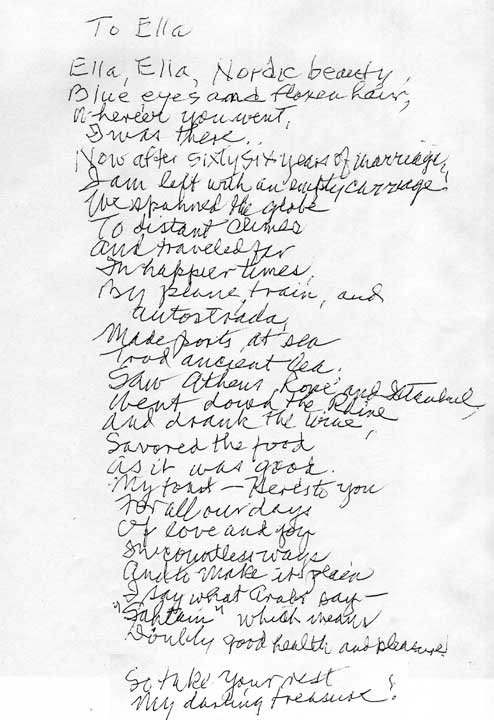 To Ella
Ella, Ella, Nordic beauty,
Blue, eyes and flaxen hair,
Where'er you went,
I was there..
Now after sixty six years of marriage,
I am left with an empty carriage!
We spanned the globe
To distant climes
and traveled far
In happier times,
By plane, train, and
autostrada,
Made ports at sea
Trod ancient lea.
Saw Athens, Rome and Istanbul,
Went down the Rhine
and drank the wine,
Savored the food
as it was good.
My toast — Here's to you
For all our days
Of love and joy
In countless ways
And to make it plain
I say what Arabs say —
"Sahtain" which means
Doubly good health and pleasure!
So take your rest
My darling treasure!